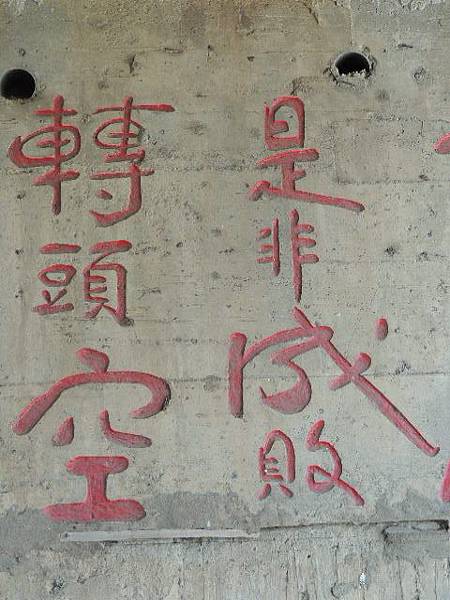 是非成敗
轉頭空